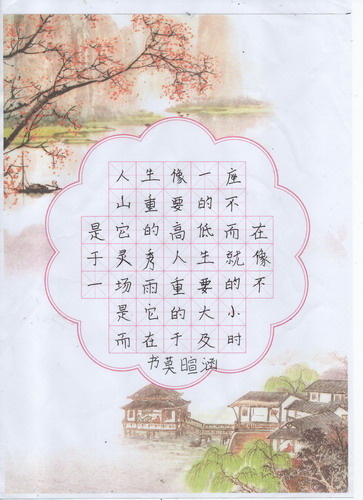 人生像一座
山重要的不
是它的高低而在
于灵秀人生就像
一场雨重要的不
是它的大小
而在于及时
书莫暄涵